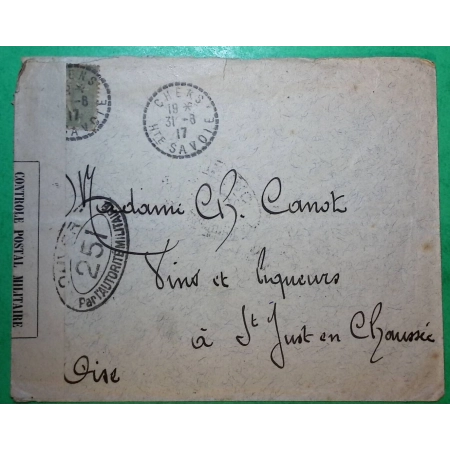 CHENS
19 *
31 - 8
17
HTE SAVOIE
CHENS
* - 8
17
SAVOIE
CONTROLE POSTAL MILITAIRE
OUVERT
251
Par l'AUTORITÉ MILITAIRE
Madame Ch. Canot
Vins et liqueurs
à St Just en Chaussée
Oise